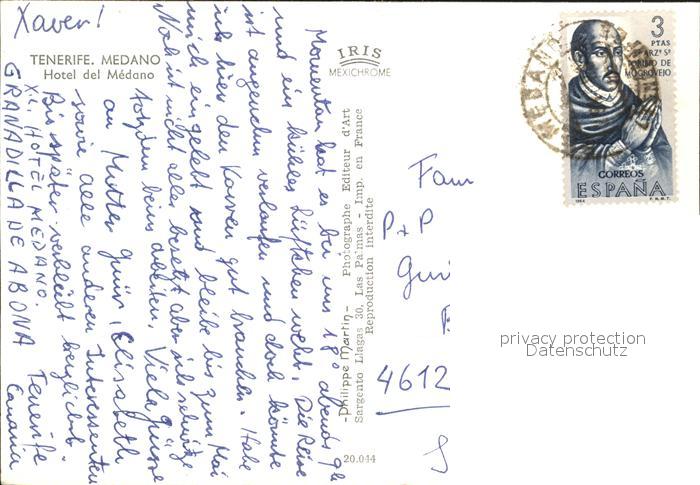 TENERIFE. MEDANO
Hotel del Médano
IRIS
MEXICHROME
Momentan hat es bei uns 18° abends 9h
und ein kühles Lüftchen weht. Die Reise
ist angenehm verlaufen und doch könnte
ich hier den Karren gut brauchen. Habe
mich eingelebt und bleibe bis zum Mai
Noch ist nicht alles besetzt aber ich schwitze
trotzdem beim arbeiten. Viele Grüsse
an Mutter Elisabeth
sowie alle anderen Interessenten
Bis später verbleibt herzlichst
Xaver!
X.L. HOTEL MEDANO.
GRANADILLA DE ABONA Tenerife
Canaria
-Philippe Martin- Photographe Editeur d'Art
Sargento Llagas 30, Las Palmas - Imp. en France
Reproduction interdite
20.044
Fam
P + P
4612
3
PTAS
ARZº Sº
TORIBIO DE
MOGROVEJO
CORREOS
ESPAÑA
1964 F.N.M.T.
MEDANO
privacy protection
Datenschutz